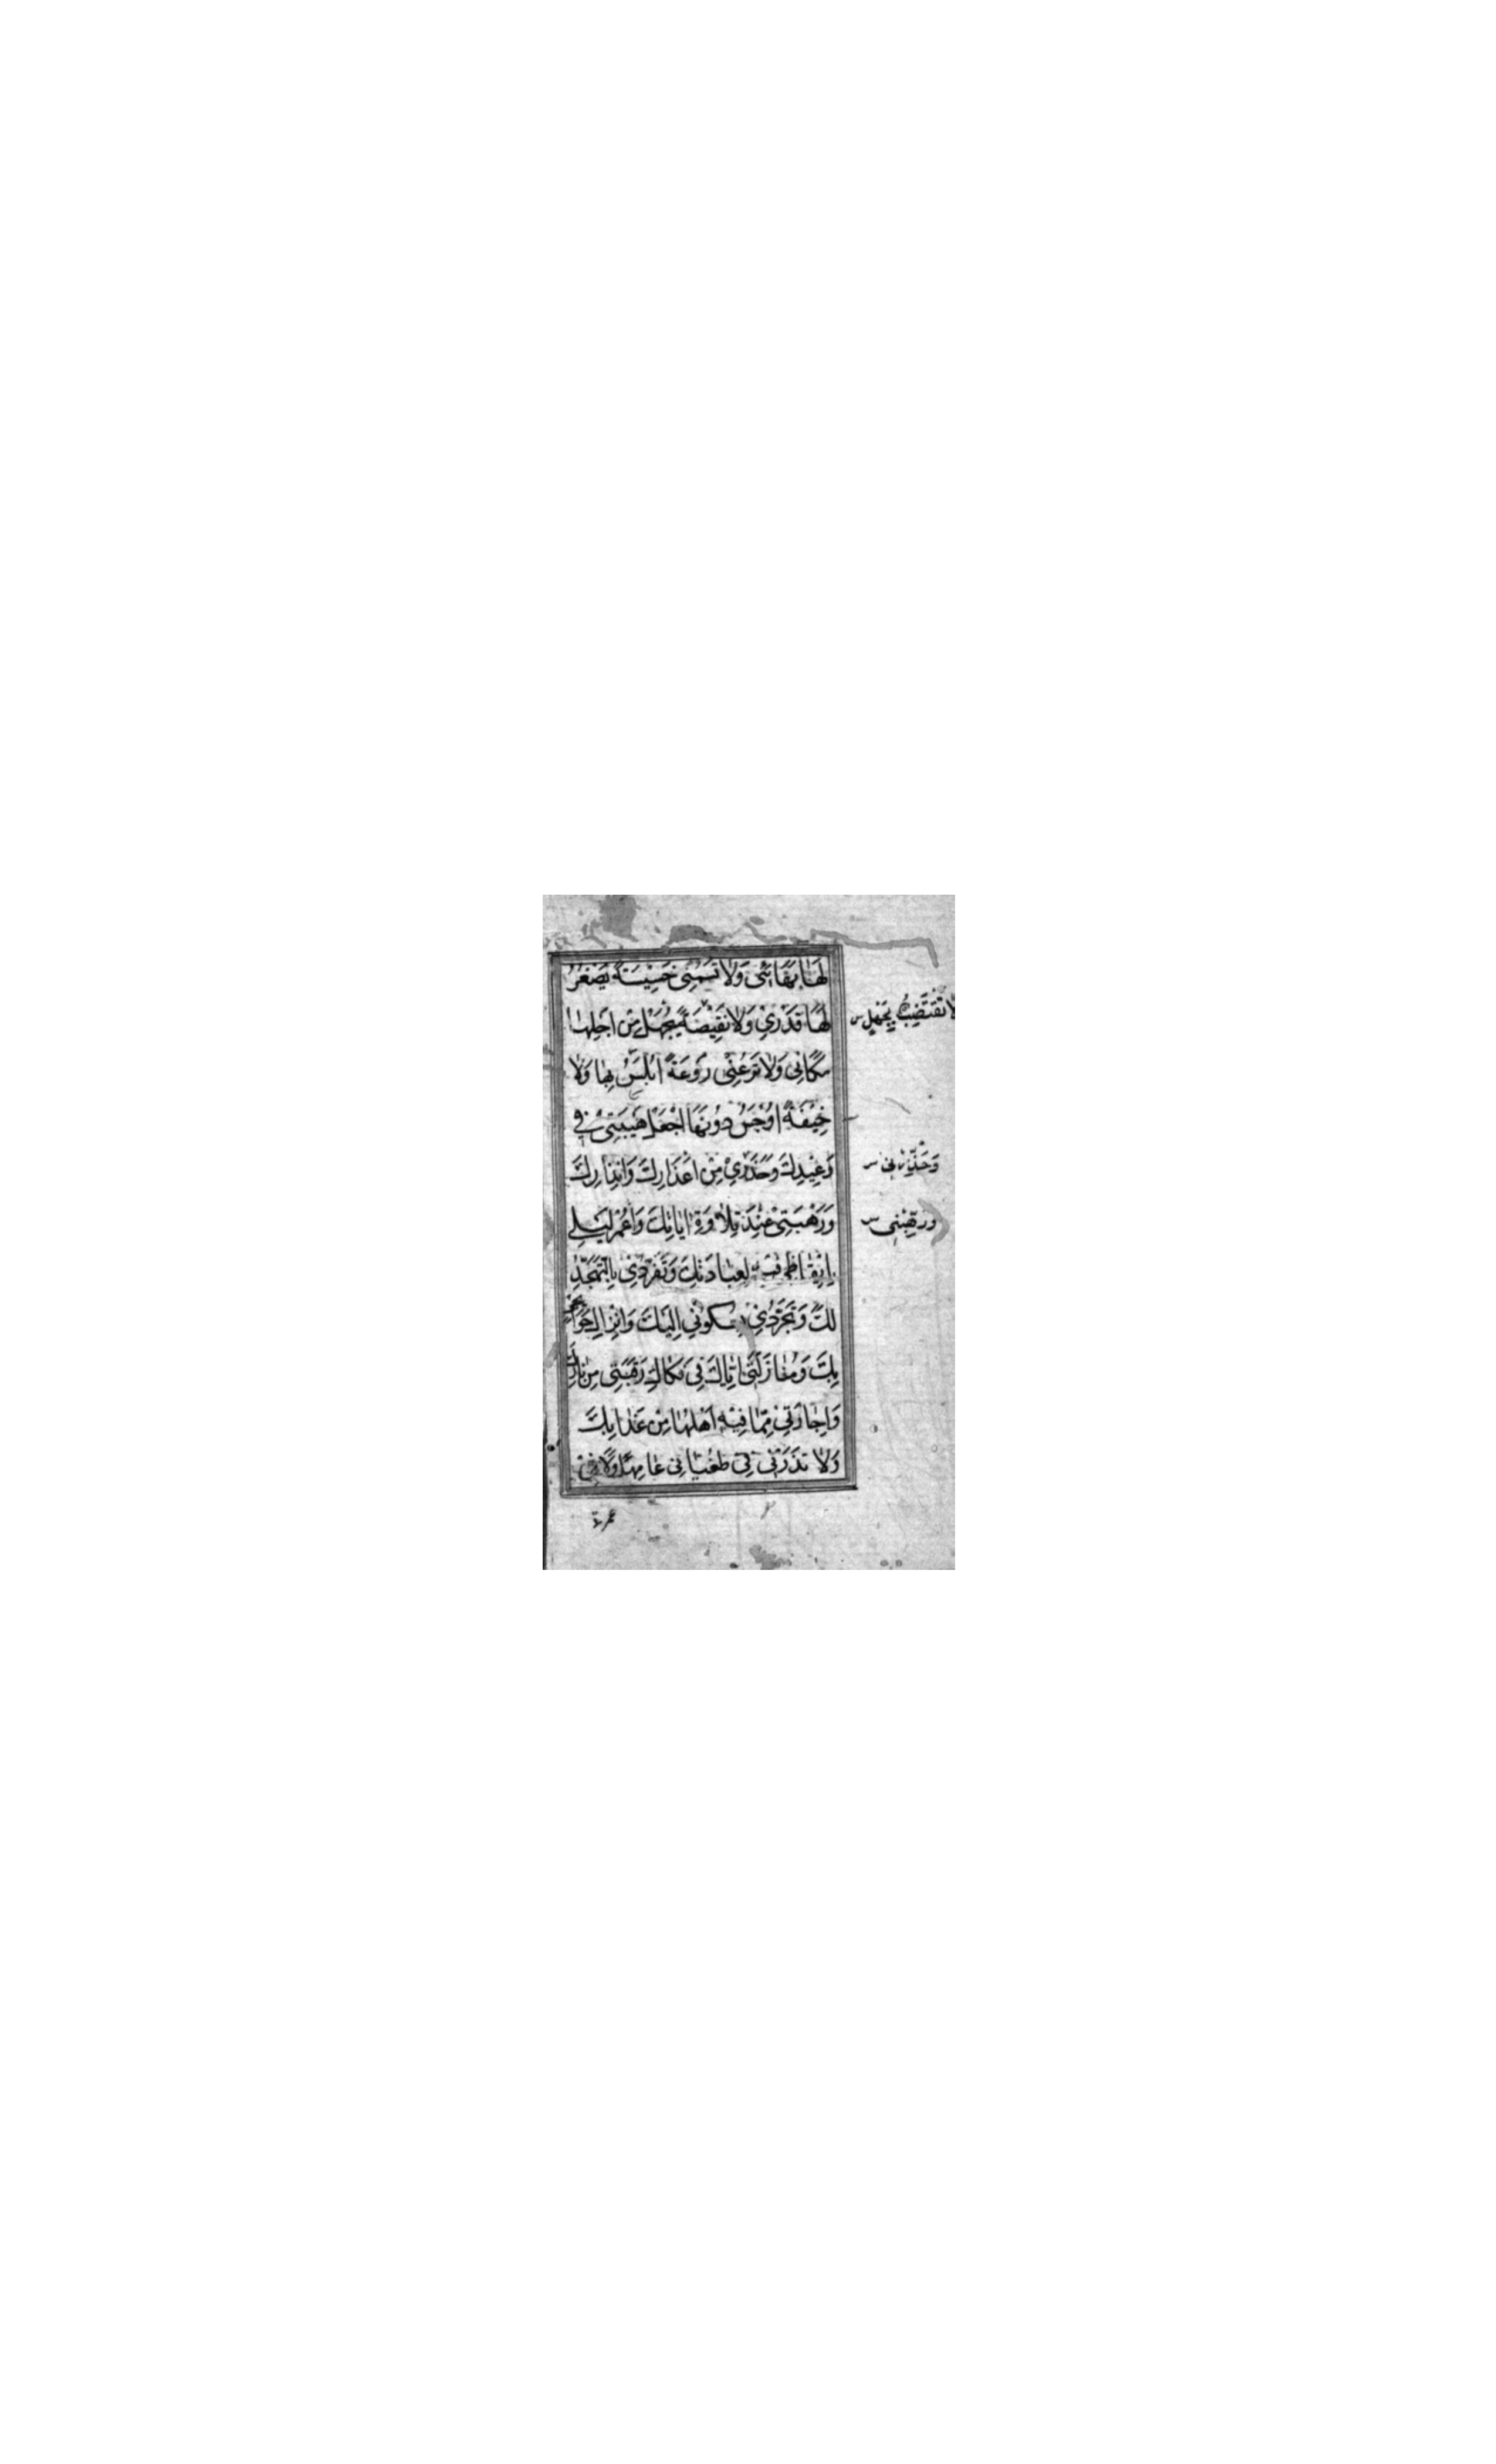 لَهَا بَهَائِي وَلَا تَسُمْنِي خَسِيسَةً يَصْغُرُ
لَهَا قَدْرِي وَلَا نَقِيصَةً يُجْهَلُ مِنْ اَجْلِهَا
مَكَانِي وَلَا تَرُعْنِي رَوْعَةً اُبْلِسُ بِهَا وَلَا
خِيفَةً اُوجِسُ دُونَهَا اجْعَلْ هَيْبَتِي فِي
وَعِيدِكَ وَحَذَرِي مِنْ اِعْذَارِكَ وَاِنْذَارِكَ
وَرَهْبَتِي عِنْدَ تِلَاوَةِ اٰيَاتِكَ وَاعْمُرْ لَيْلِي
بِاِيقَاظِي فِيهِ لِعِبَادَتِكَ وَتَفَرُّدِي بِالتَّهَجُّدِ
لَكَ وَتَجَرُّدِي بِسُكُونِي اِلَيْكَ وَاِنْزَالِ حَوَائِجِي
بِكَ وَمُنَازَلَتِي اِيَّاكَ فِي فَكَاكِ رَقَبَتِي مِنْ نَارِكَ
وَاِجَارَتِي مِمَّا فِيهِ اَهْلُهَا مِنْ عَذَابِكَ
وَلَا تَذَرْنِي فِي طُغْيَانِي عَامِهًا وَلَا فِي
لَا تَقْتَضِبْ
وَرَهِّبْنِي س
غمرة